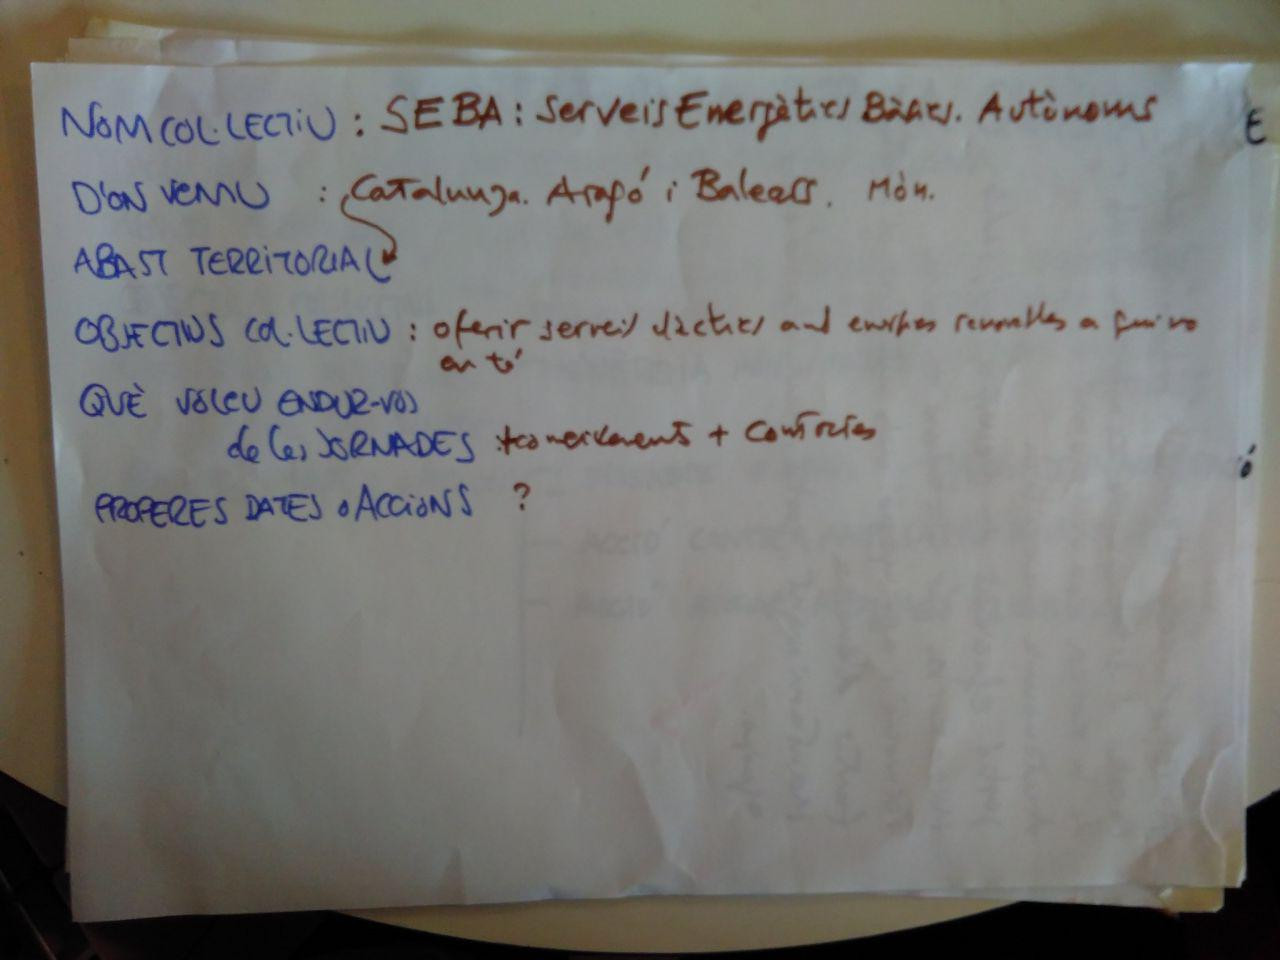 NOM COL·LECTIU : SEBA : Serveis Energètics Bàsics. Autònoms
D'ON VENIU : Catalunya. Aragó i Balears. Món.
ABAST TERRITORIAL
OBJECTIUS COL·LECTIU : oferir serveis elèctrics amb energies renovables a qui no
en té
QUÈ VOLEU ENDUR-VOS
de les JORNADES : + coneixements + contactes
PROPERES DATES o ACCIONS ?